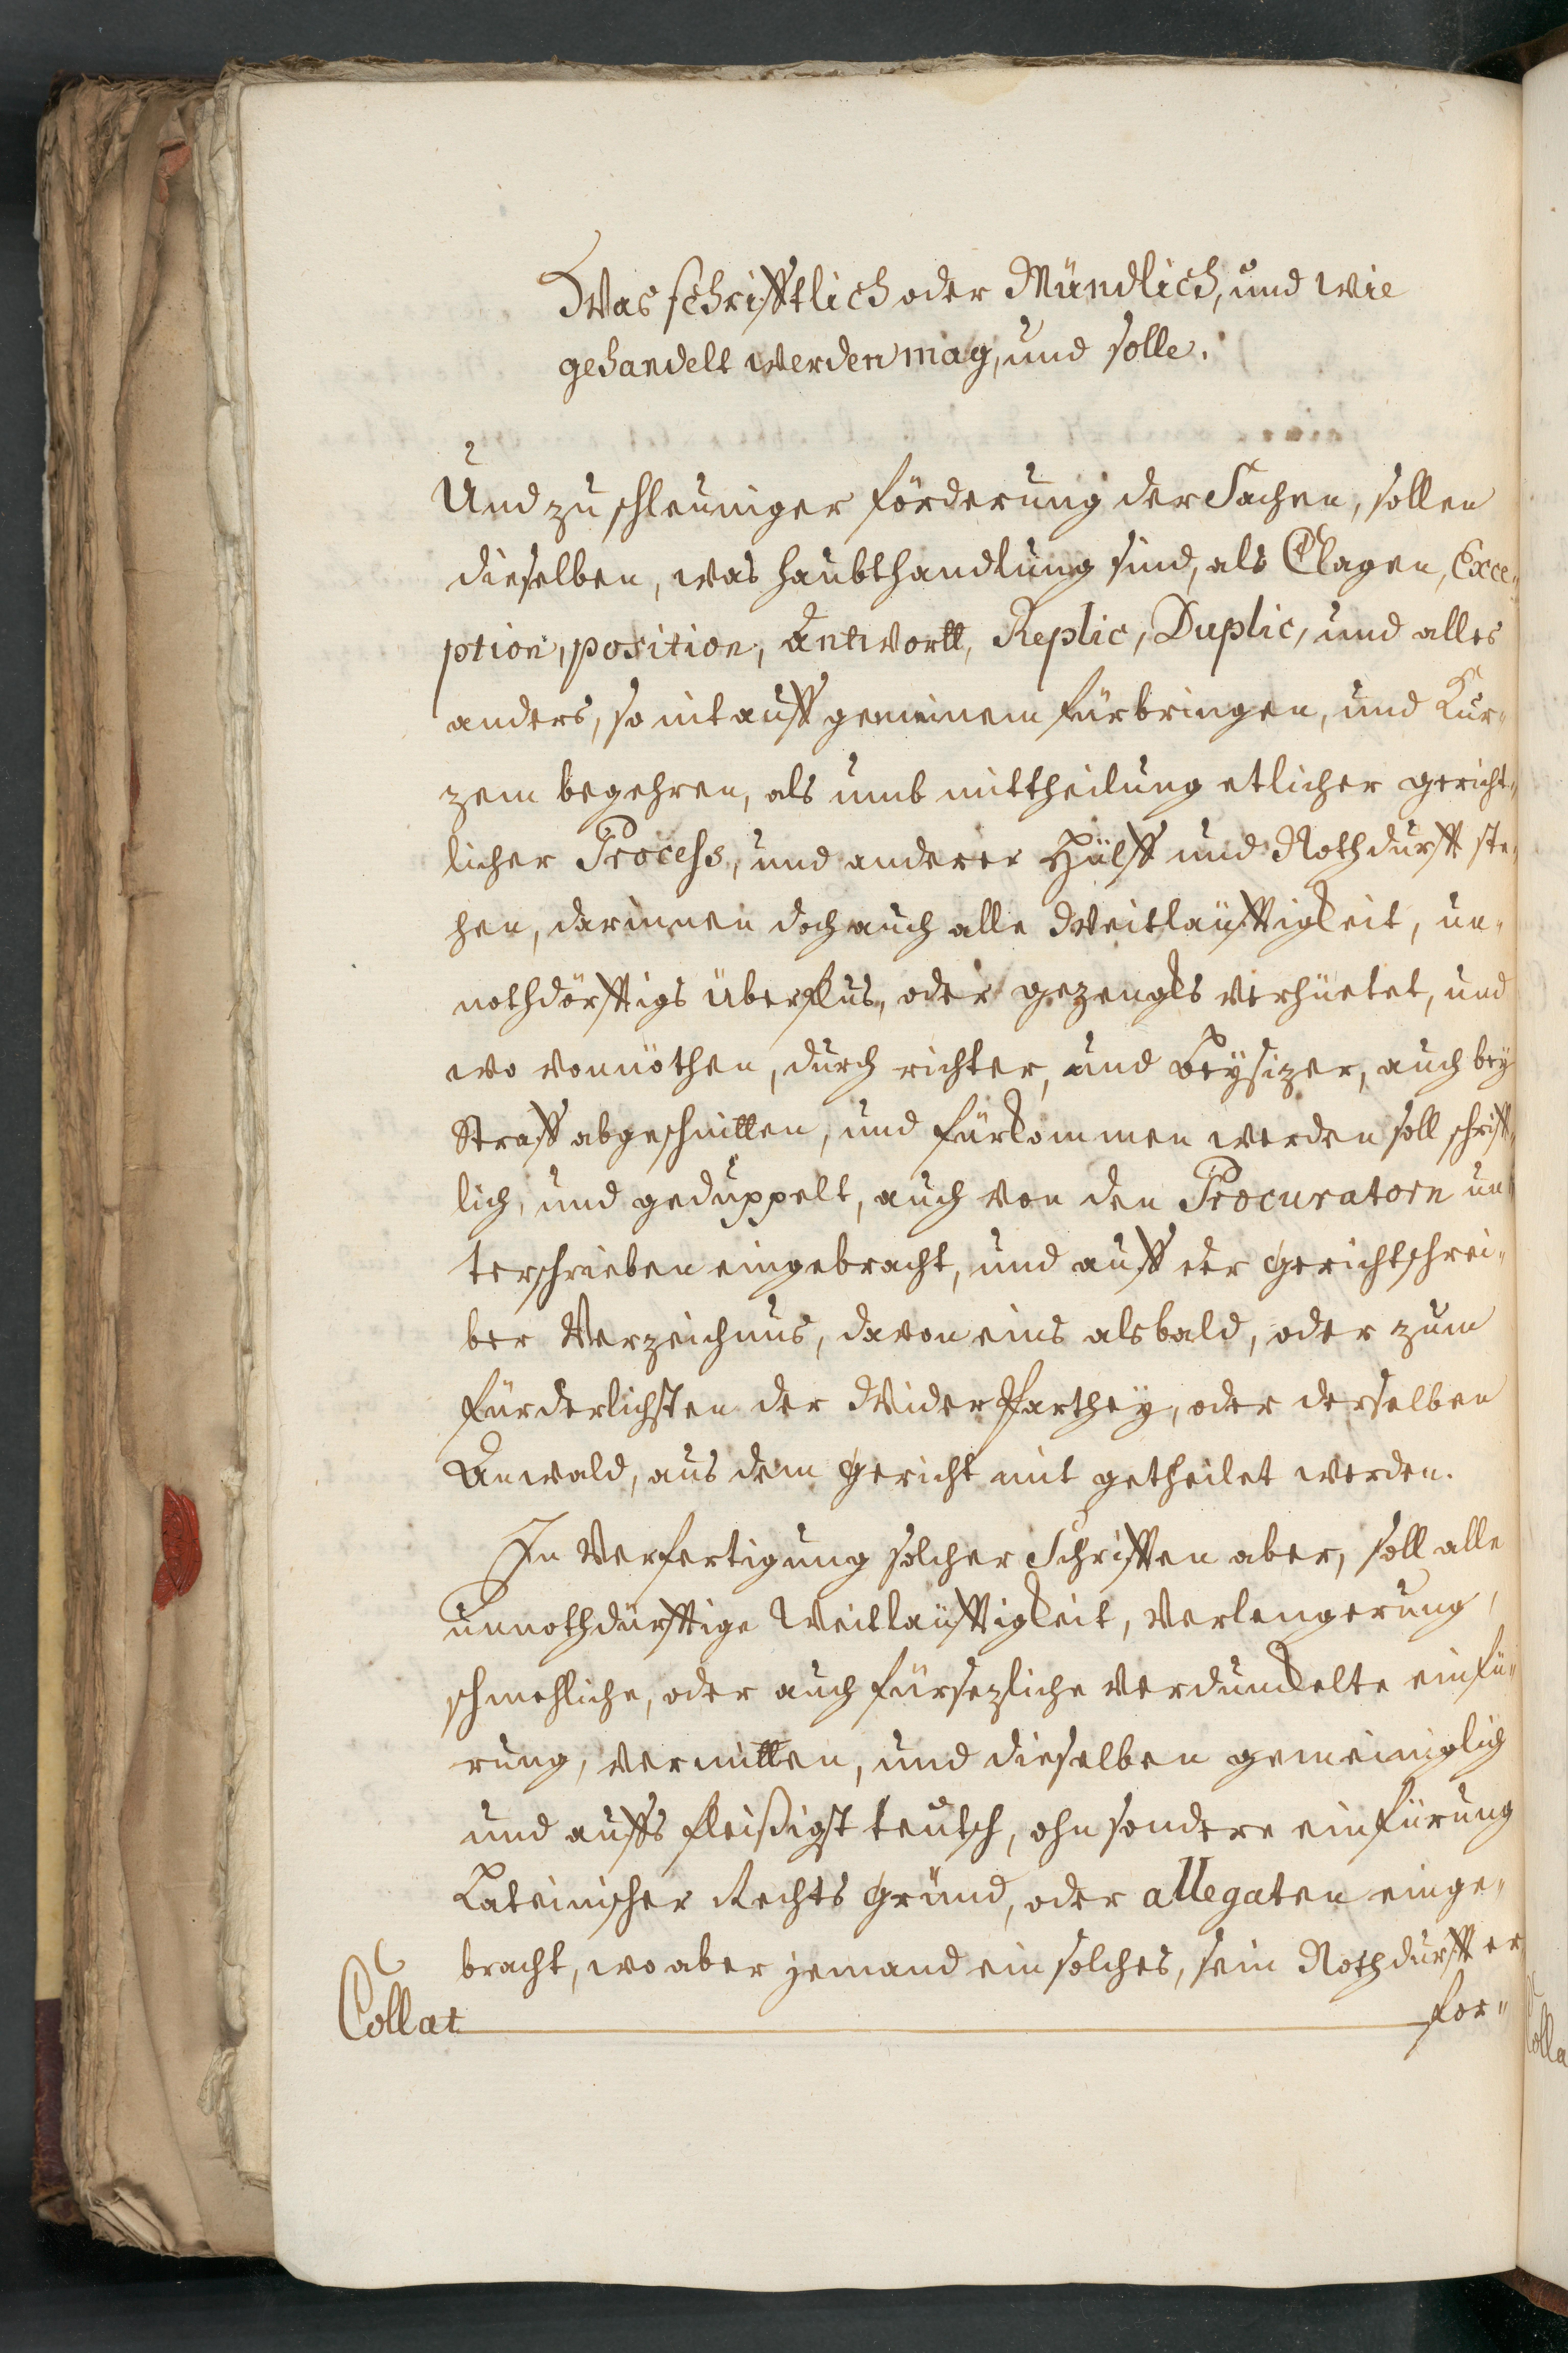 Was schrifftlich oder Mündlich, und wie
gehandelt werden mag, und solle.
Und zu schleuniger förderung der Sachen, sollen
dieselben, was haubthandlung sind, als Clagen, Exce„
ption, position, Antwortt, Replic, Duplic, und alles
anders, so nit auff gemeinem fürbringen, und Kur„
zem begehren, als umb mittheilung etlicher gericht„
licher Process, und anderer Hülff und Nothdurfft ste„
hen, darinnen doch auch alle Weitläufftigkeit, un„
nothdörfftigs überflus, oder gezengks verhüetet, und
wo vonnöthen, durch richter, und Beysizer, auch bey
Straff abgeschnitten, und fürkommen werden soll schrifft„
lich, und geduppelt, auch von den Procuratorn un„
terschrieben eingebracht, und auff der gerichtschrei„
ber Verzeichnus, davon eins alsbald, oder zum
fürderlichsten der Widerparthey, oder derselben
Anwald, aus dem gericht mit getheilet werden.
In Verfertigung solcher Schrifften aber, soll alle
unnothdürfftige Weitläufftigkeit, Verlengerung,
schmehliche, oder auch fürsezliche verdunckelte einfü„
rung, vermitten, und dieselben gemeiniglich
und auffs fleißigst teutsch, ohn sondere einfürung
Lateinischer Rechts gründ, oder allegaten einge„
bracht, wo aber jemand ein solches, sein Nothdurfft er
for„
Collat